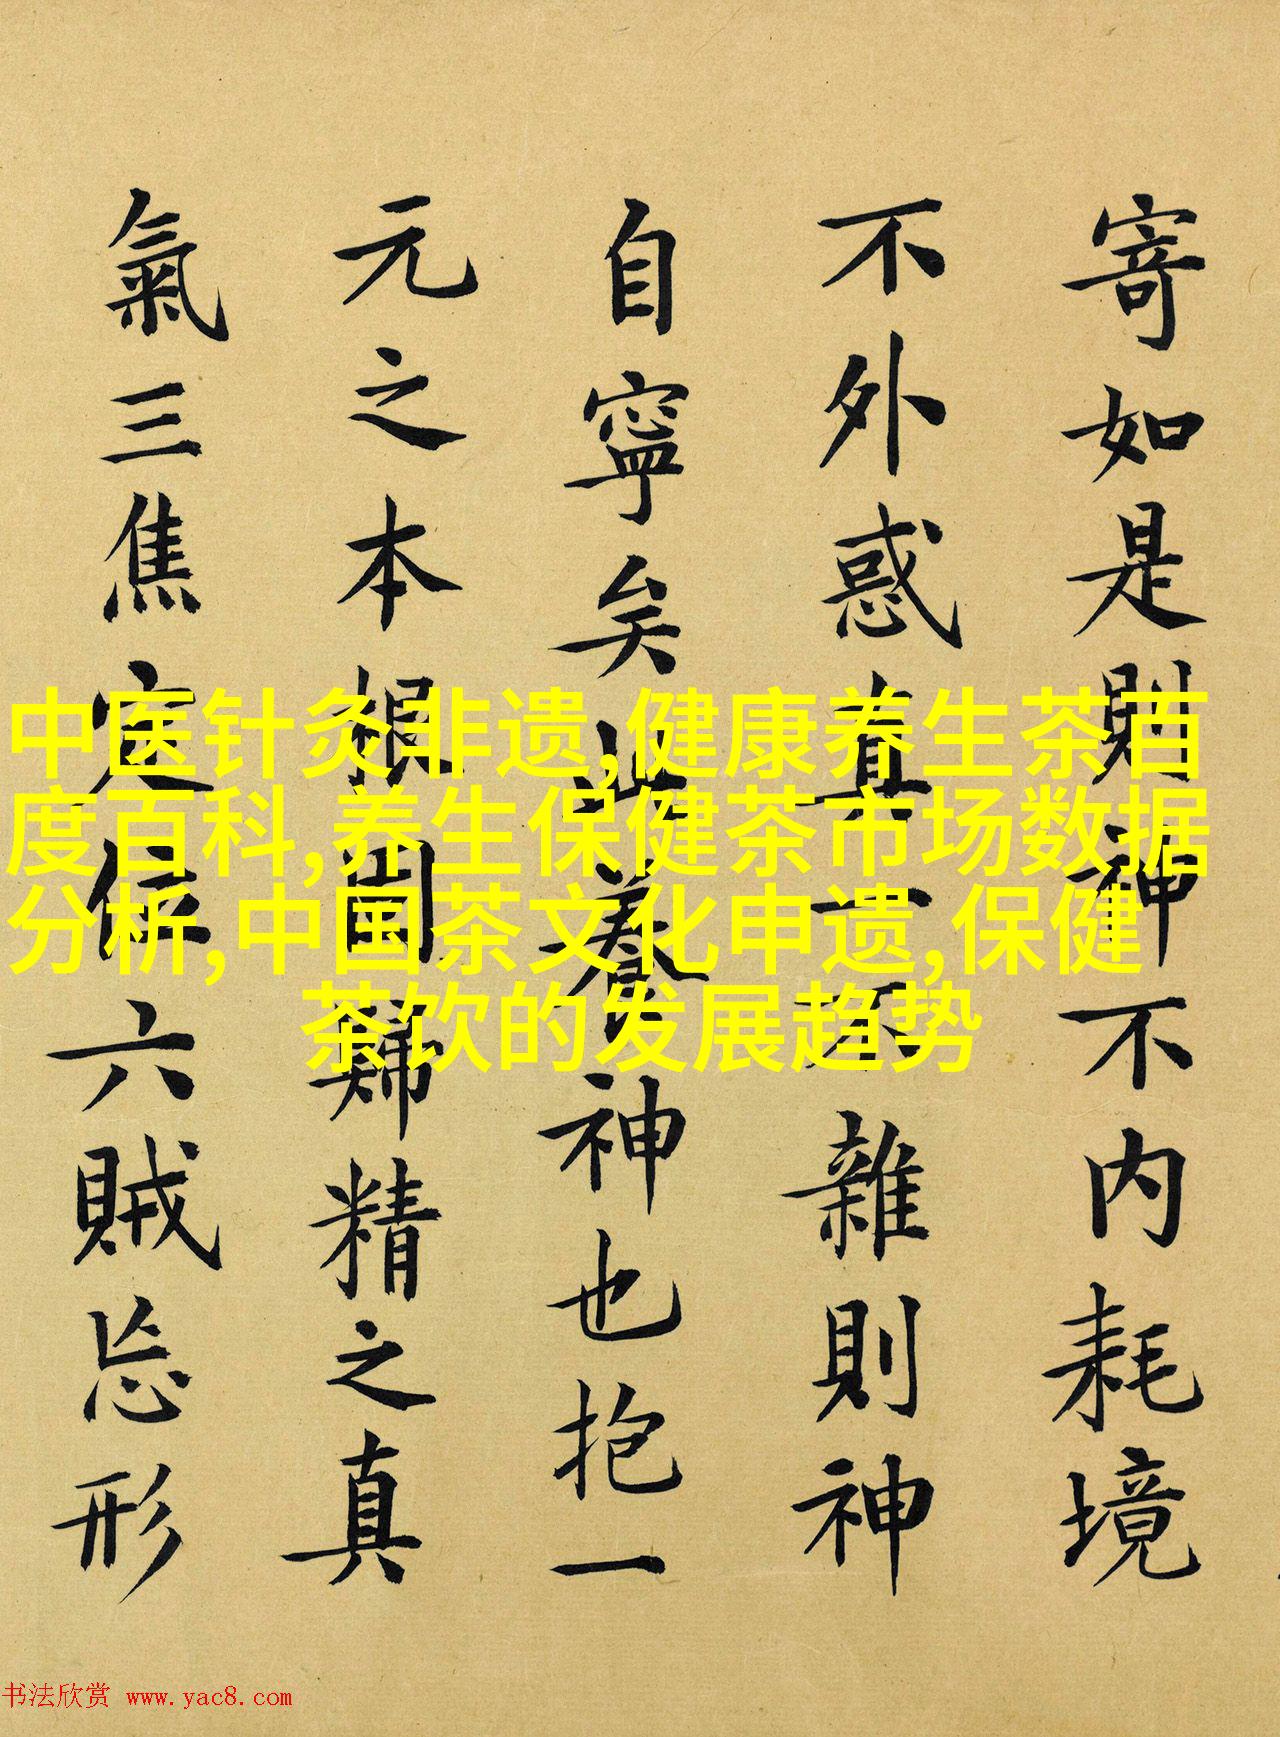 寄如是則神不内耗境
不外惑真一不雜則神
自寧矣此養神也抱一
元之本根固歸精之真
氣三焦定位六賊忘形
中医针灸非遗,健康养生茶百
度百科,养生保健茶市场数据
分析,中国茶文化申遗,保健
茶饮的发展趋势
书法欣赏 www.yac8.com